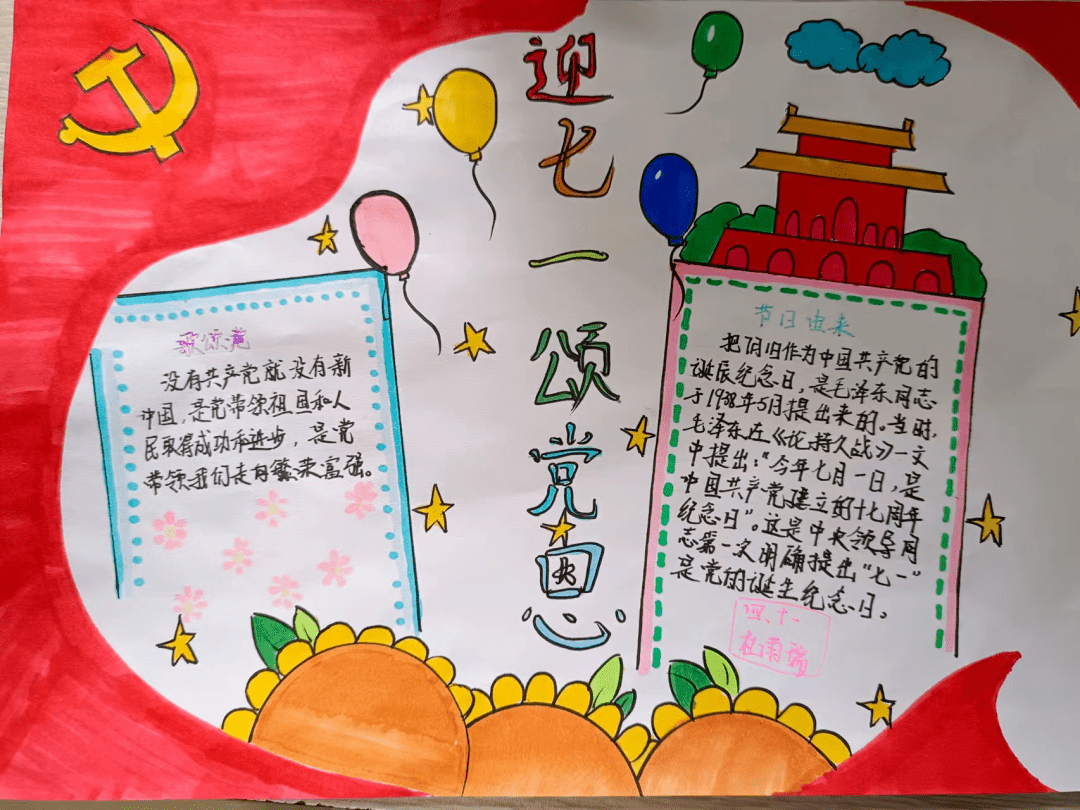 迎七一颂党恩
歌颂党
没有共产党就没有新
中国，是党带领祖国和人
民取得成功和进步，是党
带领我们走向繁荣富强。
节日由来
把阴旧作为中国共产党的
诞辰纪念日，是毛泽东同志
于1938年5月提出来的。当时，
毛泽东在《论持久战》一文
中提出："今年七月一日，是
中国共产党建立的十七周年
纪念日"。这是中央领导同
志第一次明确提出"七一"
是党的诞生纪念日。
四、十一